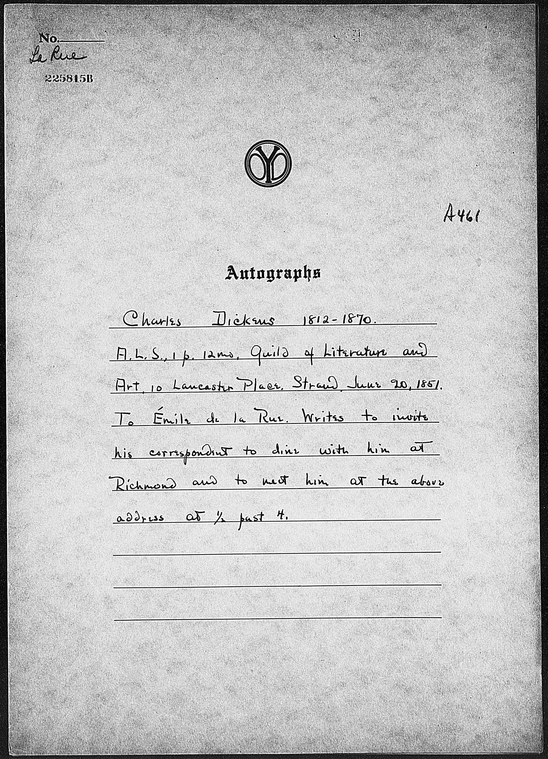 No.
La Rue
225815B
A461
Autographs
Charles Dickens 1812-1870.
A.L.S., 1 p. 12mo. Guild of Literature and
Art, 10 Lancaster Place, Strand, June 20, 1851.
To Émile de la Rue. Writes to invite
his correspondent to dine with him at
Richmond and to meet him at the above
address at ½ past 4.